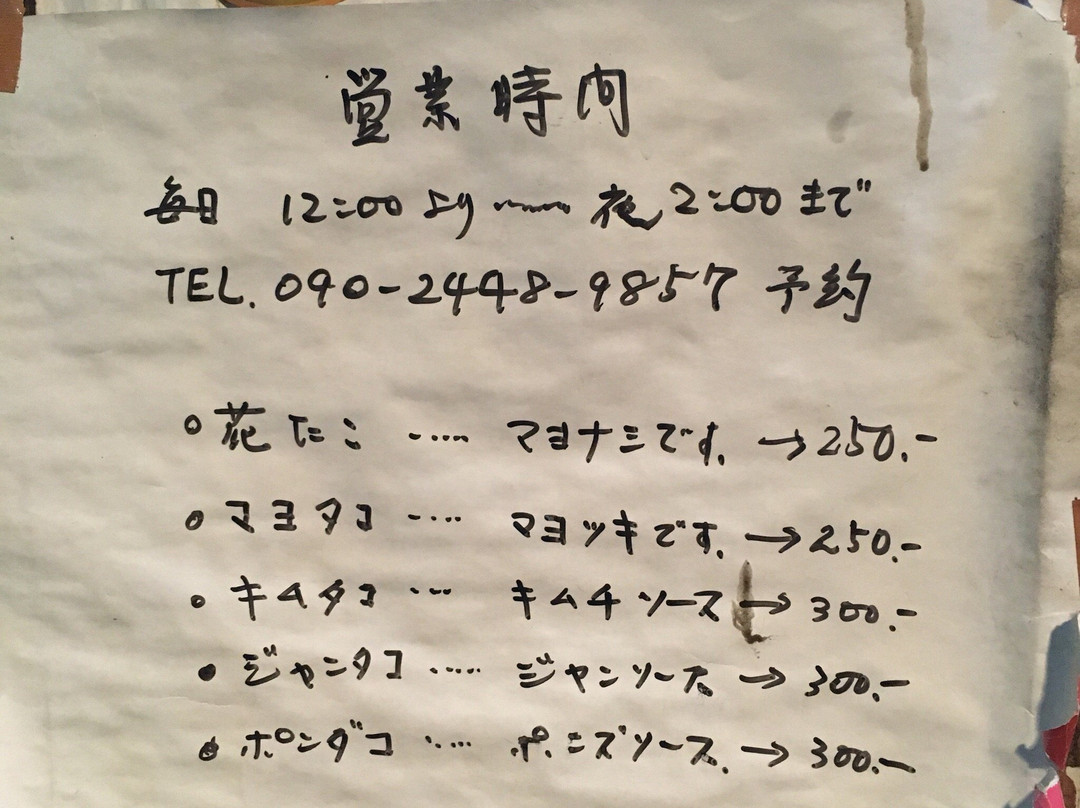 営業時間
毎日 12:00 より 〜〜 夜 2:00 まで
TEL. 090-2448-9857 予約
○ 花たこ ‥‥ マヨナミです. → 250.-
○ マヨタコ ‥‥ マヨツキです. → 250.-
○ キムタコ ‥‥ キムチソース → 300.-
● ジャンタコ ‥‥ ジャンソース → 300.-
● ポンダコ ‥‥ ポンズソース. → 300.-